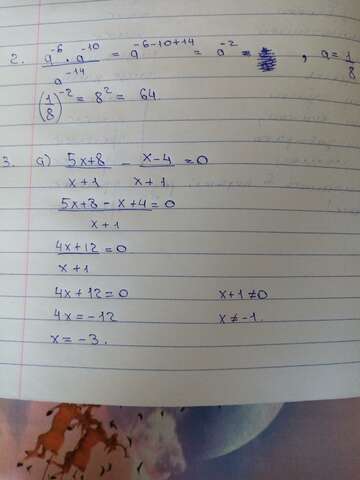 2. a⁻⁶ · a⁻¹⁰ / a⁻¹⁴ = a⁻⁶⁻¹⁰⁺¹⁴ = a⁻² = , a = 1/8
(1/8)⁻² = 8² = 64
3. a) 5x+8 / x+1 - x-4 / x+1 = 0
5x+8 - x+4 / x+1 = 0
4x+12 / x+1 = 0
4x+12=0 x+1≠0
4x=-12 x≠-1.
x=-3.